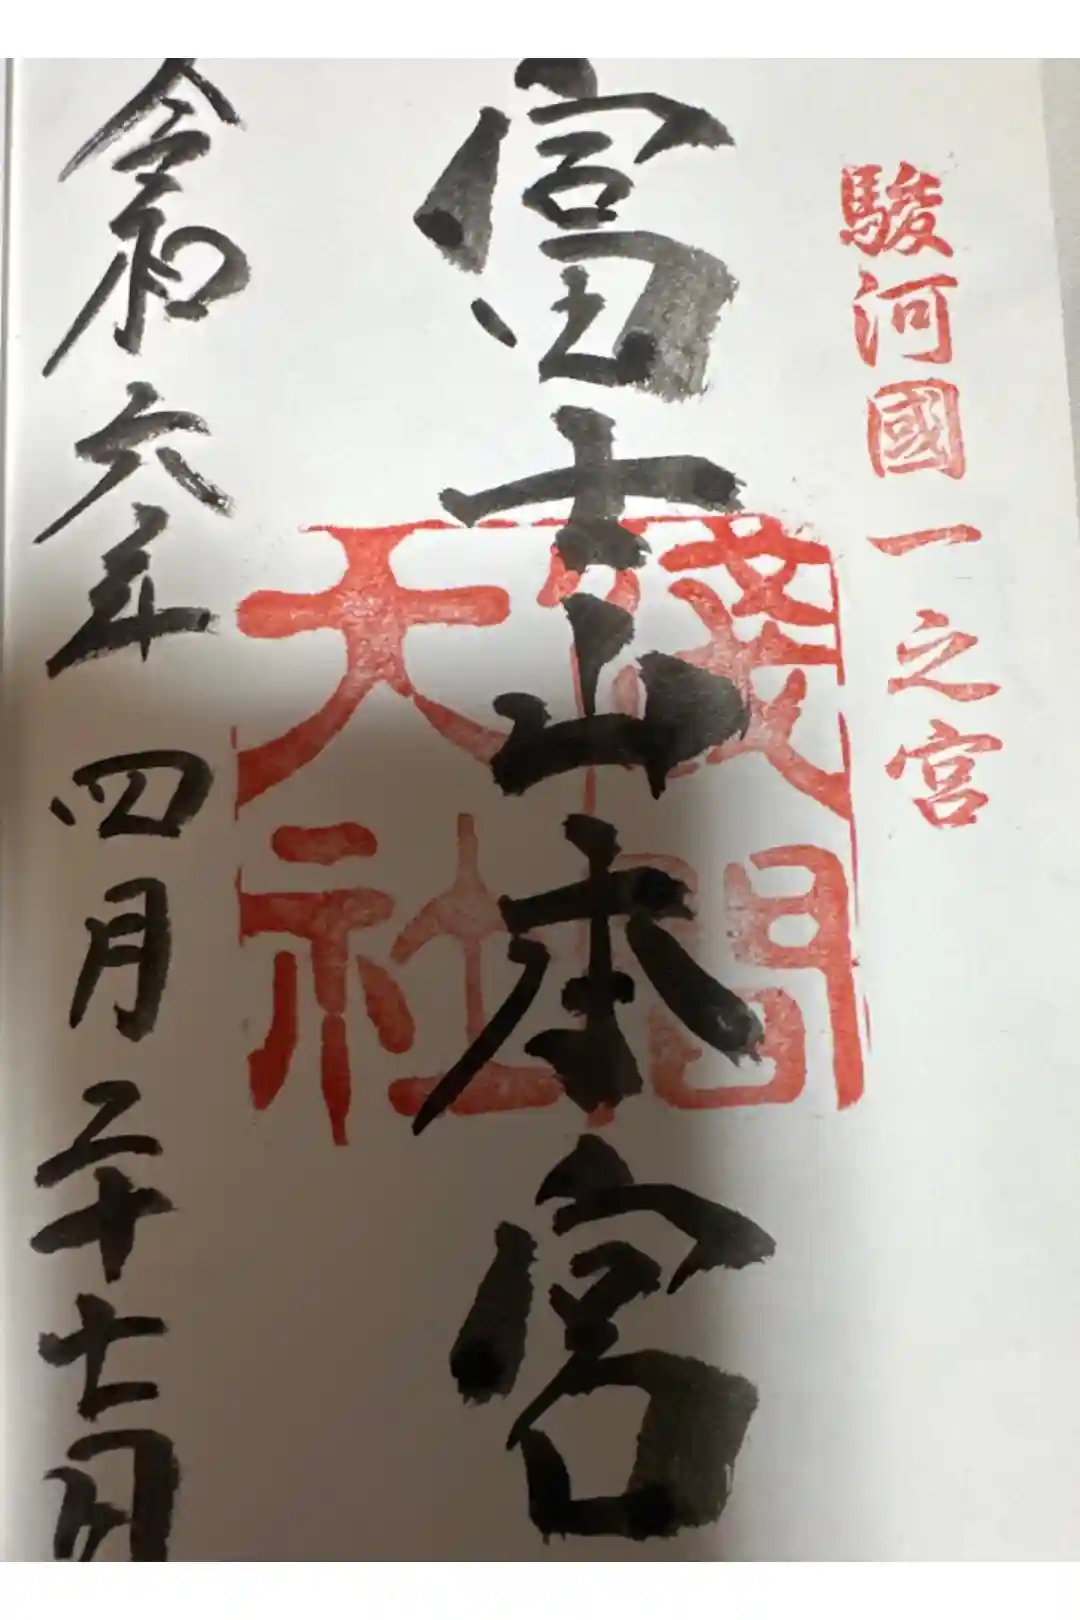 駿河國一之宮
富士山本宮
淺間大社
令和六年四月二十七日